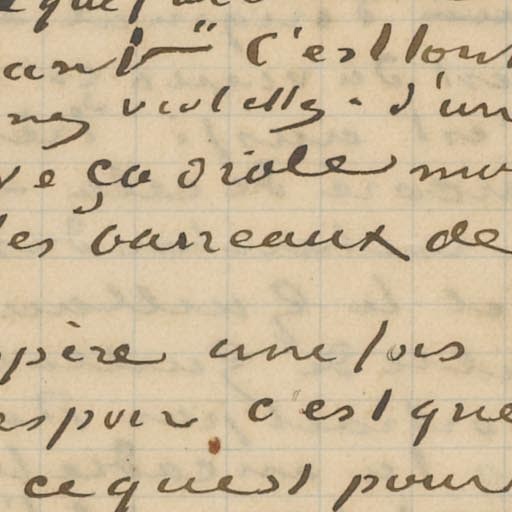 ant" C'est tout
nes violettes. d'un
ve ça drôle mo
les barreaux de
père une fois
espoir c'est que
ce qui est pour